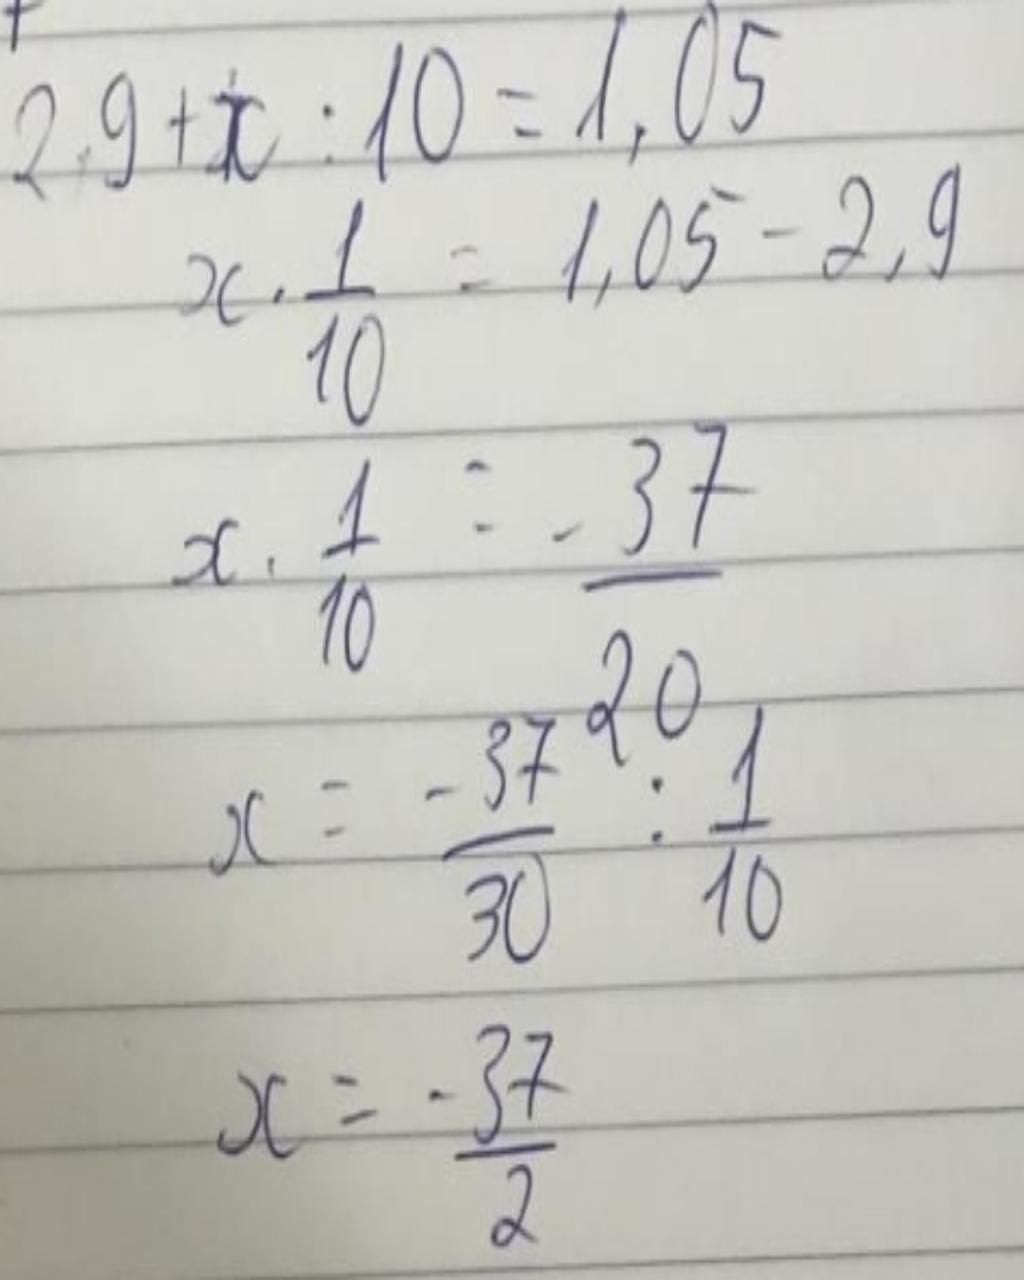 2,9 + x : 10 = 1,05
x . 1/10 = 1,05 - 2,9
x . 1/10 = - 37/20
x = - 37/30 : 1/10
x = - 37/2